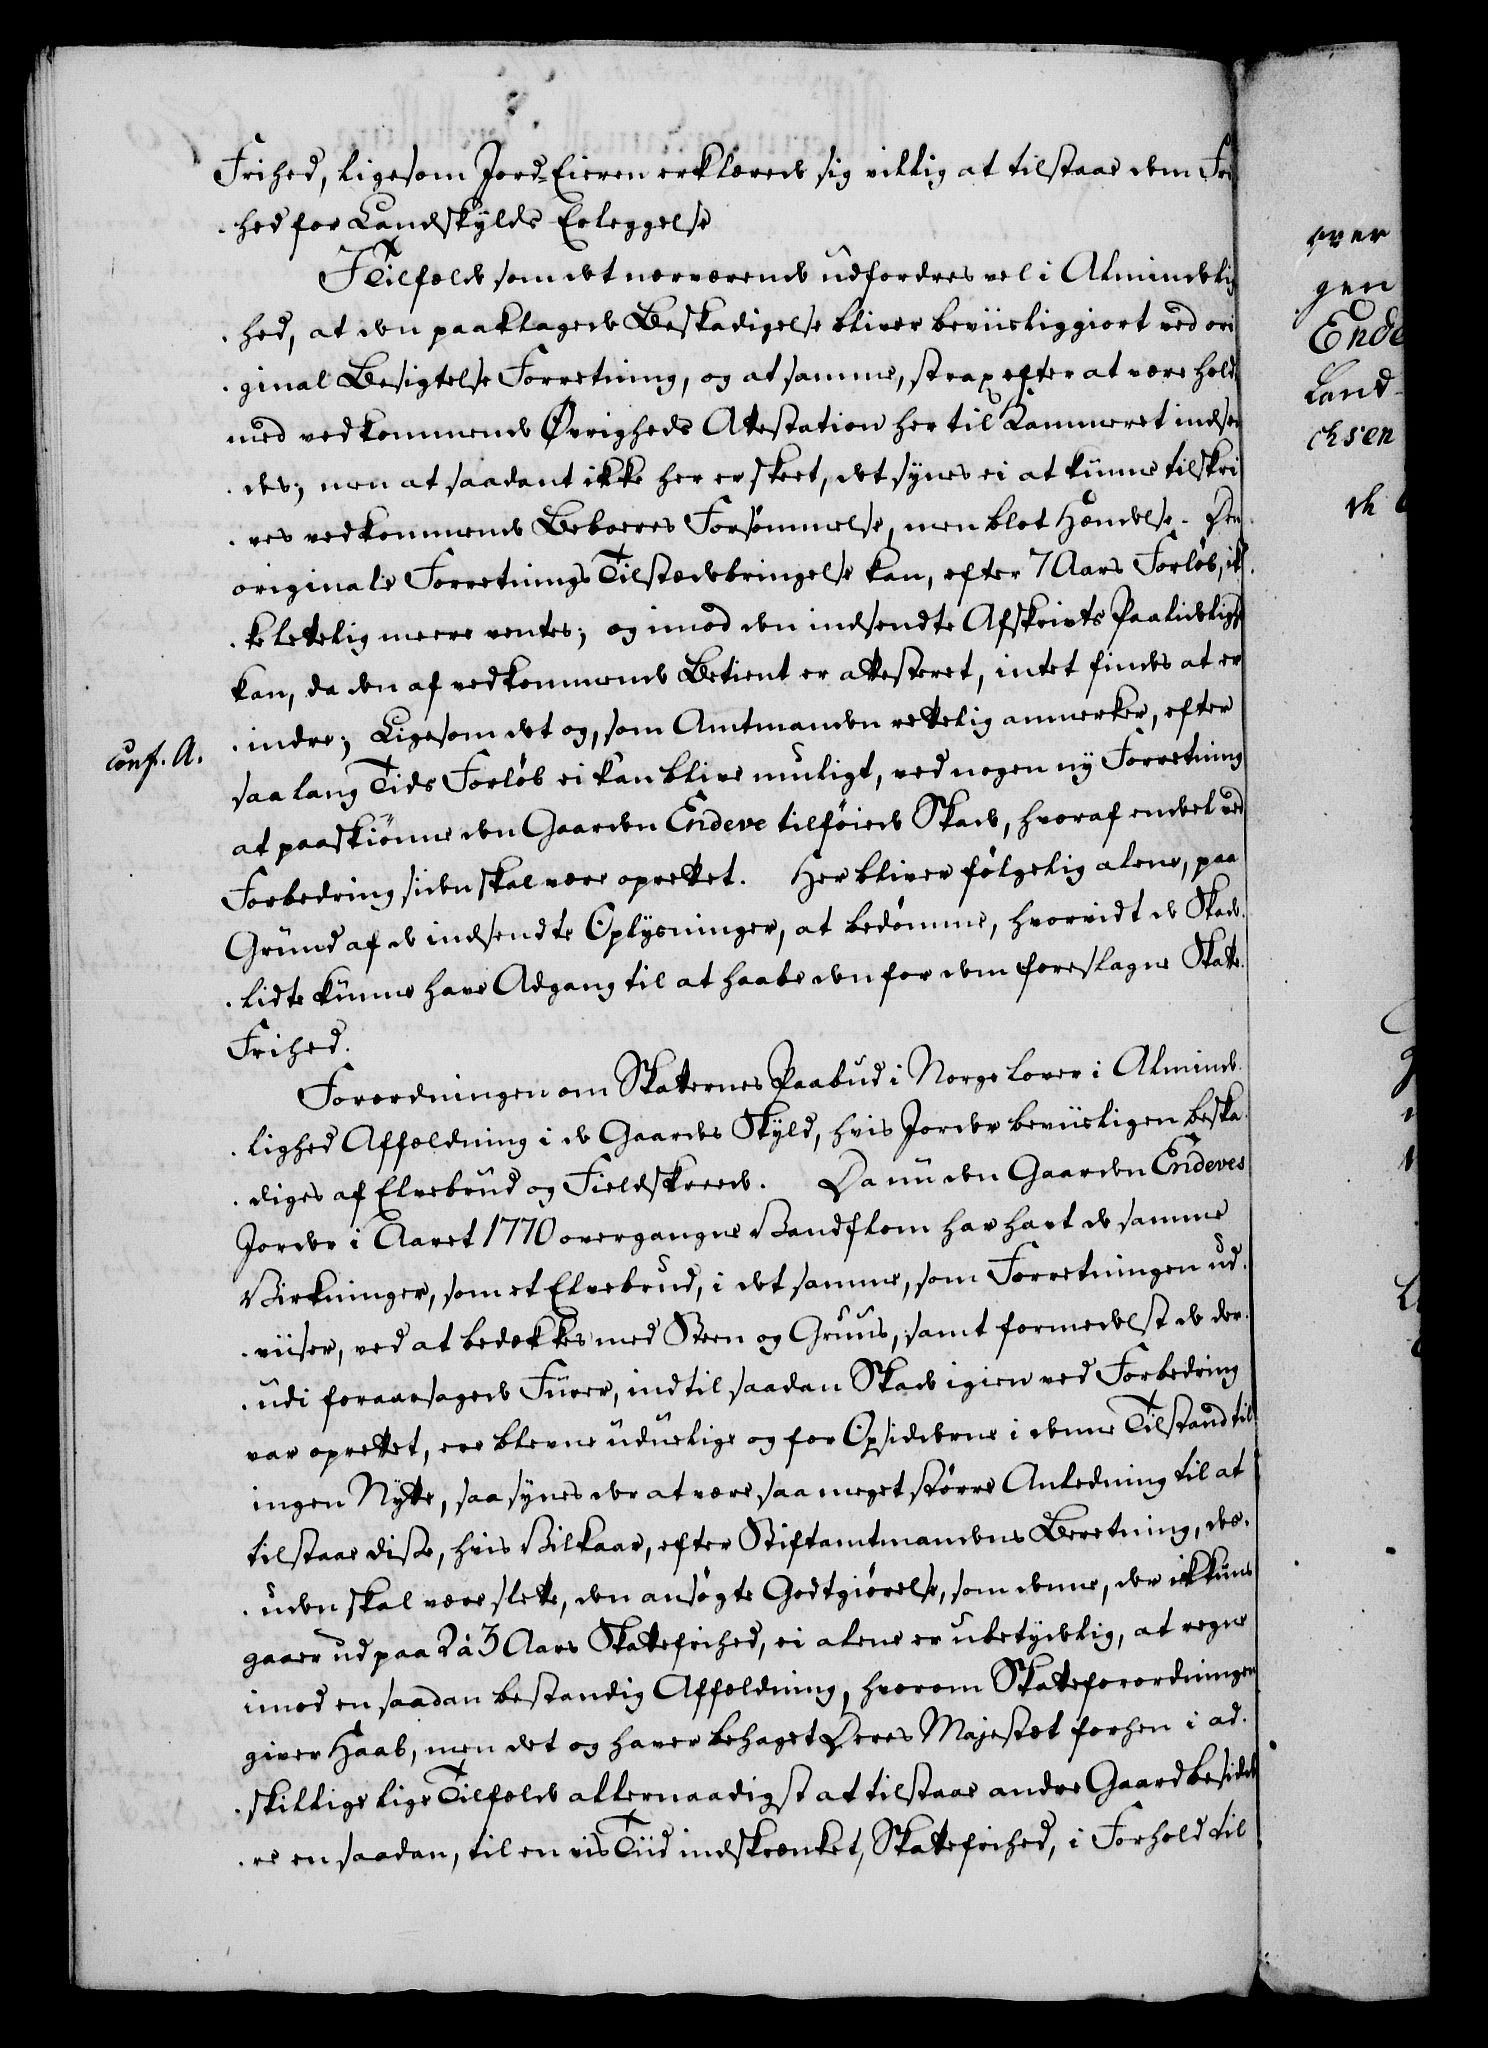 Frihed, ligesom Jord-Eieren erklærede sig villig at tilstaae dem Fri
hed for Landskylds Erleggelse
I Tilfælde som det nærværende udfordres vel i Almindelig
hed, at den paaklagede Beskadigelse bliver beviisliggiort ved ori
ginal Besigtelse Forretning, og at samme, strax efter at være holdt
med vedkommende Øvrigheds Attestation her til Kammeret indsen
des; men at saadant ikke her er skeet, det synes ei at kunne tilskri
ves vedkommende Beboeres Forsömmelse, men blot Hændelse. Den
originale Forretnings Tilstædebringelse kan, efter 7 Aars Forlöb, ik
ke lettelig meere ventes; og imod den indsendte Afskrivts Paalidelighed
kan, da den af vedkommende Betient er attesteret, intet findes at er
indre; Ligesom det og, som Amtmanden rettelig anmerker, efter
conf. A.
saa lang Tids Forlöb ei kan blive muligt, ved nogen ny Forretning
at paaskiönne den Gaarden Endeve tilföiede Skade, hvoraf endeel ved
Forbedring siden skal være oprettet. Her bliver fölgelig alene, paa
Grund af de indsendte Oplysninger, at bedömme, hvorvidt de Skade
lidte kunne have Adgang til at haabe den for dem foreslagne Skatte
Frihed.
Forordningen om Skatternes Paabud i Norge lover i Alminde
lighed Affældning i de Gaardes Skyld, hvis Jorder beviisligen beska
diges af Elvebrud og Fieldskreed. Da nu den Gaarden Endeves
Jorder i Aaret 1770 overgangne Vandflom har havt de samme
Virkninger, som et Elvebrud, i det samme, som Forretningen ud
viiser, ved at bedækkes med Steen og Gruus, samt formedelst de der
udi foraarsagede Furer, indtil saadan Skade igien ved Forbedring
var oprettet, ere blevne uduelige og for Opsidderne i denne Tilstand til
ingen Nytte, saa synes der at være saa meget större Anledning til at
tilstaae disse, hvis Vilkaar, efter Stiftamtmandens Beretning, des
uden skal være slette, den ansögte Godtgiörelse, som denne, der ikkuns
gaaer ud paa 2 à 3 Aars Skattefrihed, ei alene er ubetydelig, at regne
imod en saadan bestandig Affældning, hvorom Skatteforordningen
giver Haab, men det og haver behaget Deres Majestæt forhen i ad
skillige lige Tilfælde allernaadigst at tilstaae andre Gaardbesidde
re en saadan, til en vis Tiid indskrænket, Skattefrihed, i Forhold til
over
gen
Ende
Land-
chsen